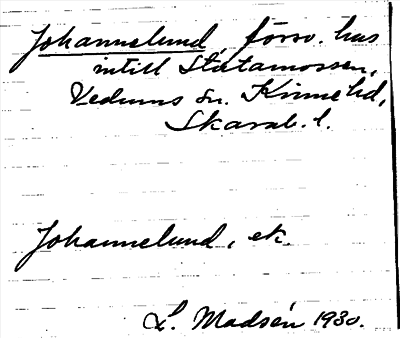 Johannelund, försv. hus
intill Stutamossen,
Vedums sn. Kinne hd,
Skarab. l.
Johannelund, ek.
L. Madsén 1930.